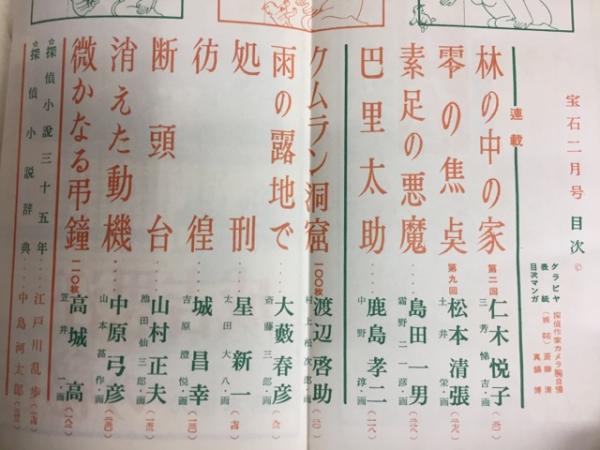 宝石二月号 目次
グラビヤ 探偵作家カメラ腕自慢
表紙
目次マンガ 真鍋 博
連載
林の中の家 第二回 仁木悦子
三芳悌吉・画
零の焦点 第九回 松本清張
土井 栄・画
素足の悪魔 島田一男
霜野二一彦・画
巴里太助 鹿島孝二
中野 淳・画
クムラン洞窟 一〇〇枚 渡辺啓助
村上松次郎・画
雨の露地で 大藪春彦
斎藤三郎・画
処刑 星新一
太田大八・画
彷徨 城昌幸
吉原澄悦・画
断頭台 山村正夫
池田仙三郎・画
消えた動機 中原弓彦
山本富作・画
微かなる弔鐘 一一〇枚 高城高
笠井 一・画
☆探偵小説三十五年 江戸川乱歩
☆探偵小説辞典 中島河太郎